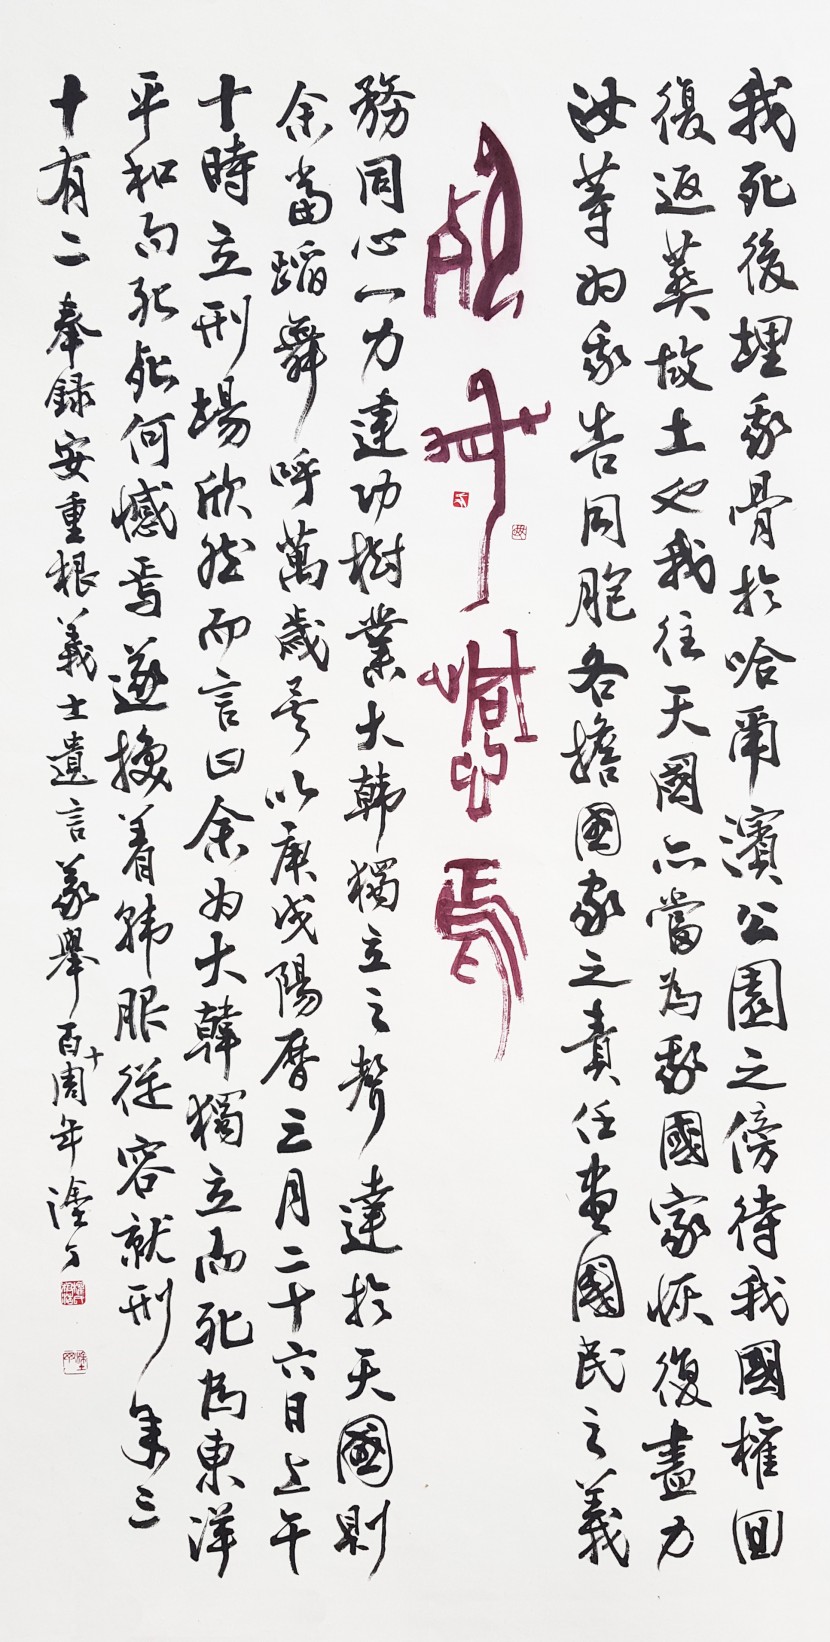 我死後埋我骨於哈爾濱公園之傍待我國權回
復返葬故土也我往天國亦當為我國家恢復盡力
汝等為我告同胞各擔国家之責任盡國民之義
死何憾焉
務同心一力建功樹業大韓獨立之聲達於天國則
余當蹈舞呼萬歲矣以庚戌陽曆三月二十六日上午
十時立刑場欣然而言曰余為大韓獨立而死為東洋
平和而死死何憾焉遂換着韓服從容就刑年三
十有二 奉録安重根義士遺言義舉百十周年塗